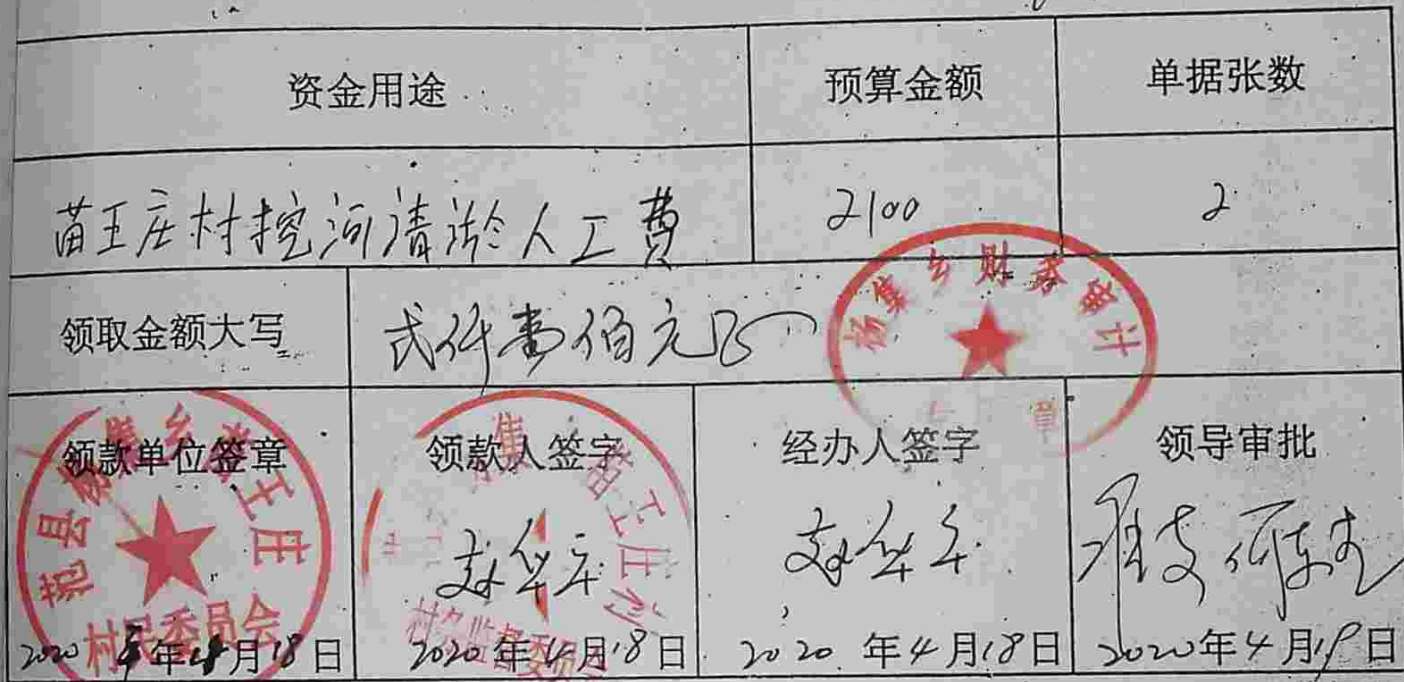 资金用途 预算金额 单据张数
苗王庄村挖河清淤人工费 2100 2
领取金额大写 弍仟壹佰元
杨集乡财务审计
章
领款单位签章 领款人签字 经办人签字 领导审批
范县杨集乡苗王庄
村民委员会
集 苗王庄村
村务监督委员
准支
2020年4月18日 2020年4月18日 2020年4月18日 2020年4月18日